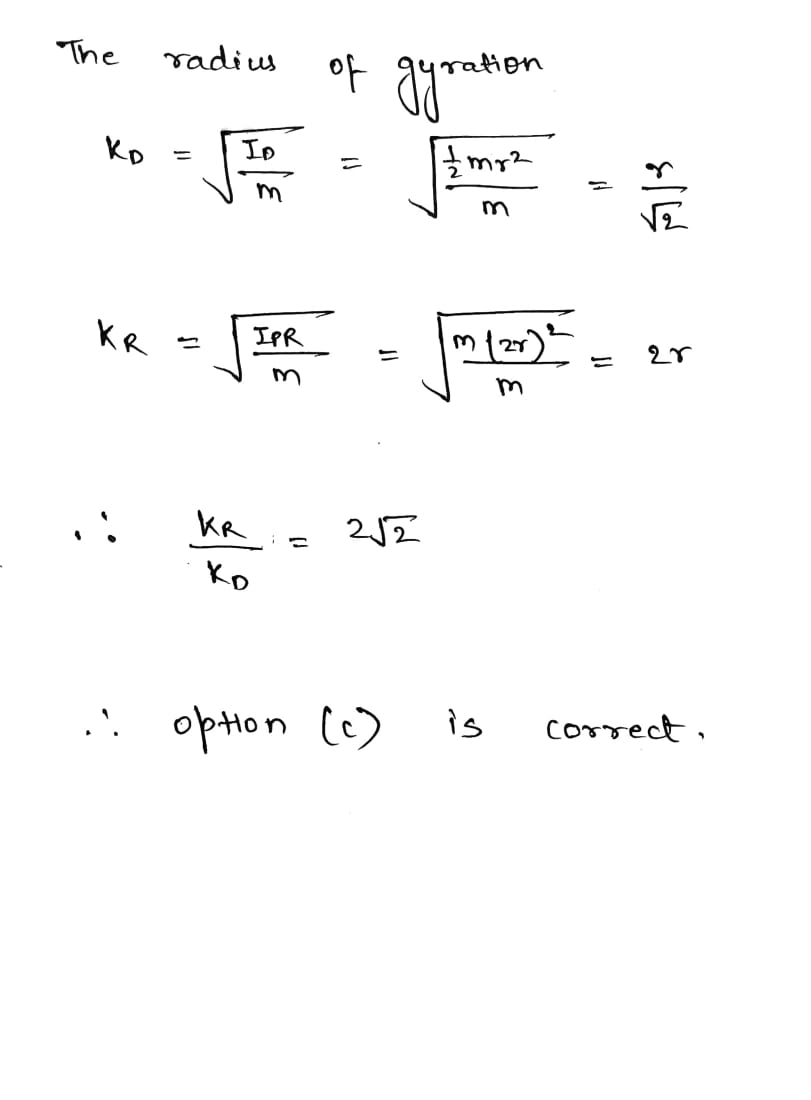 The radius of gyration
K_D = √(I_D/m) = √(½mr²/m) = r/√2
K_R = √(I_PR/m) = √(m(2r)²/m) = 2r
∴ K_R/K_D = 2√2
∴ option (c) is correct.